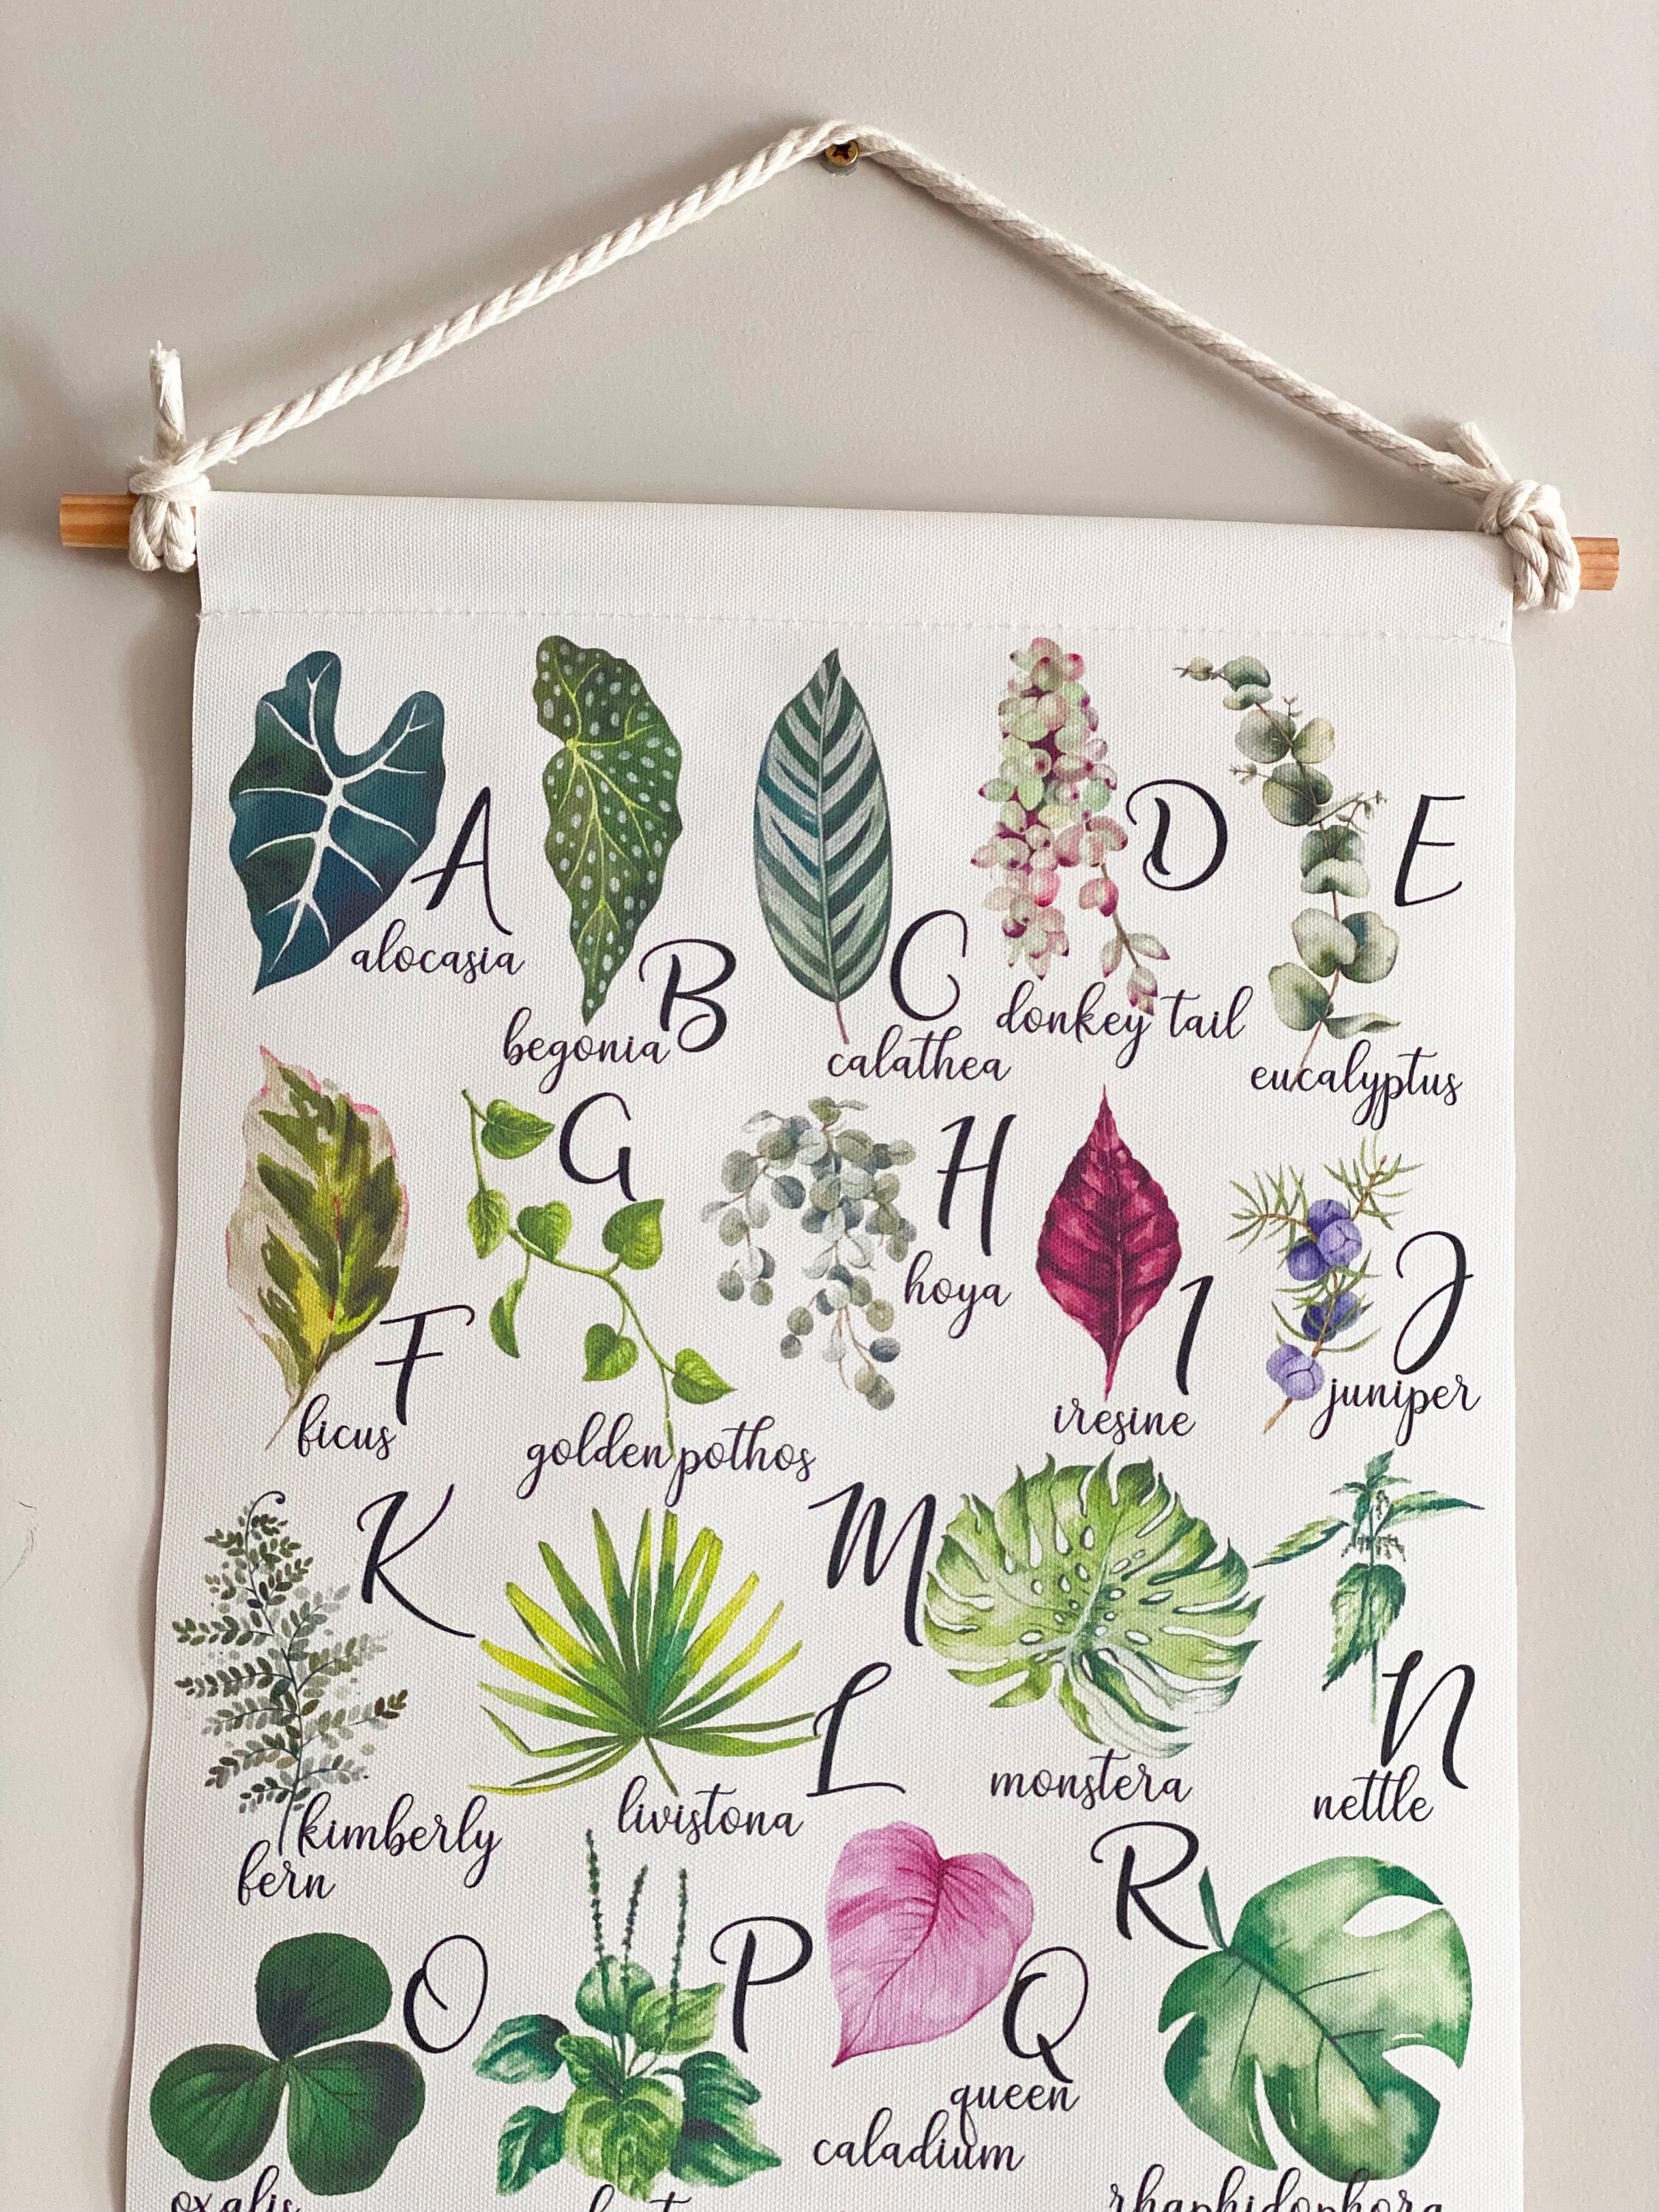 A
alocasia
B
begonia
C
calathea
D
donkey tail
E
eucalyptus
F
ficus
G
golden pothos
H
hoya
I
iresine
J
juniper
K
kimberly
fern
L
livistona
M
monstera
N
nettle
O
oxalis
P
Q
queen
caladium
R
rhaphidophora